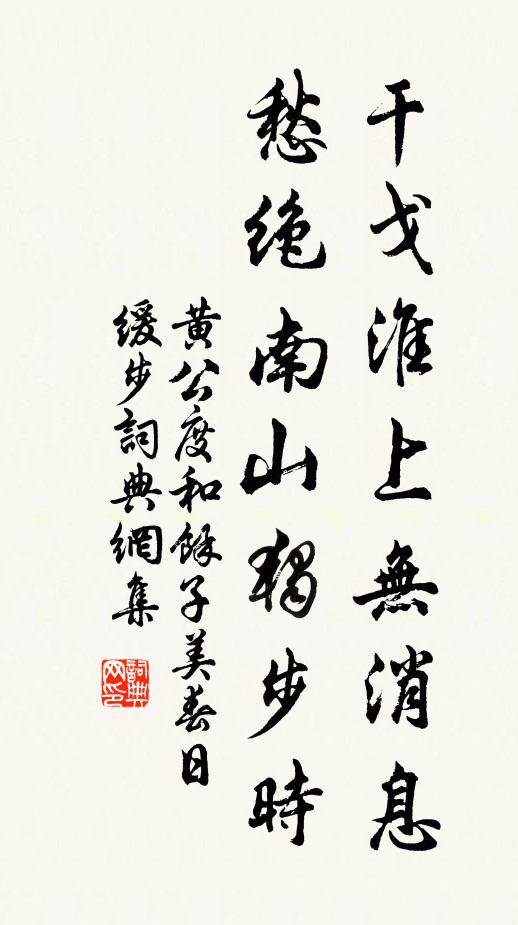 干戈淮上無消息
愁绝南山独步時
黄公度和餘子美春日
缓步詞典網集
詞典网印